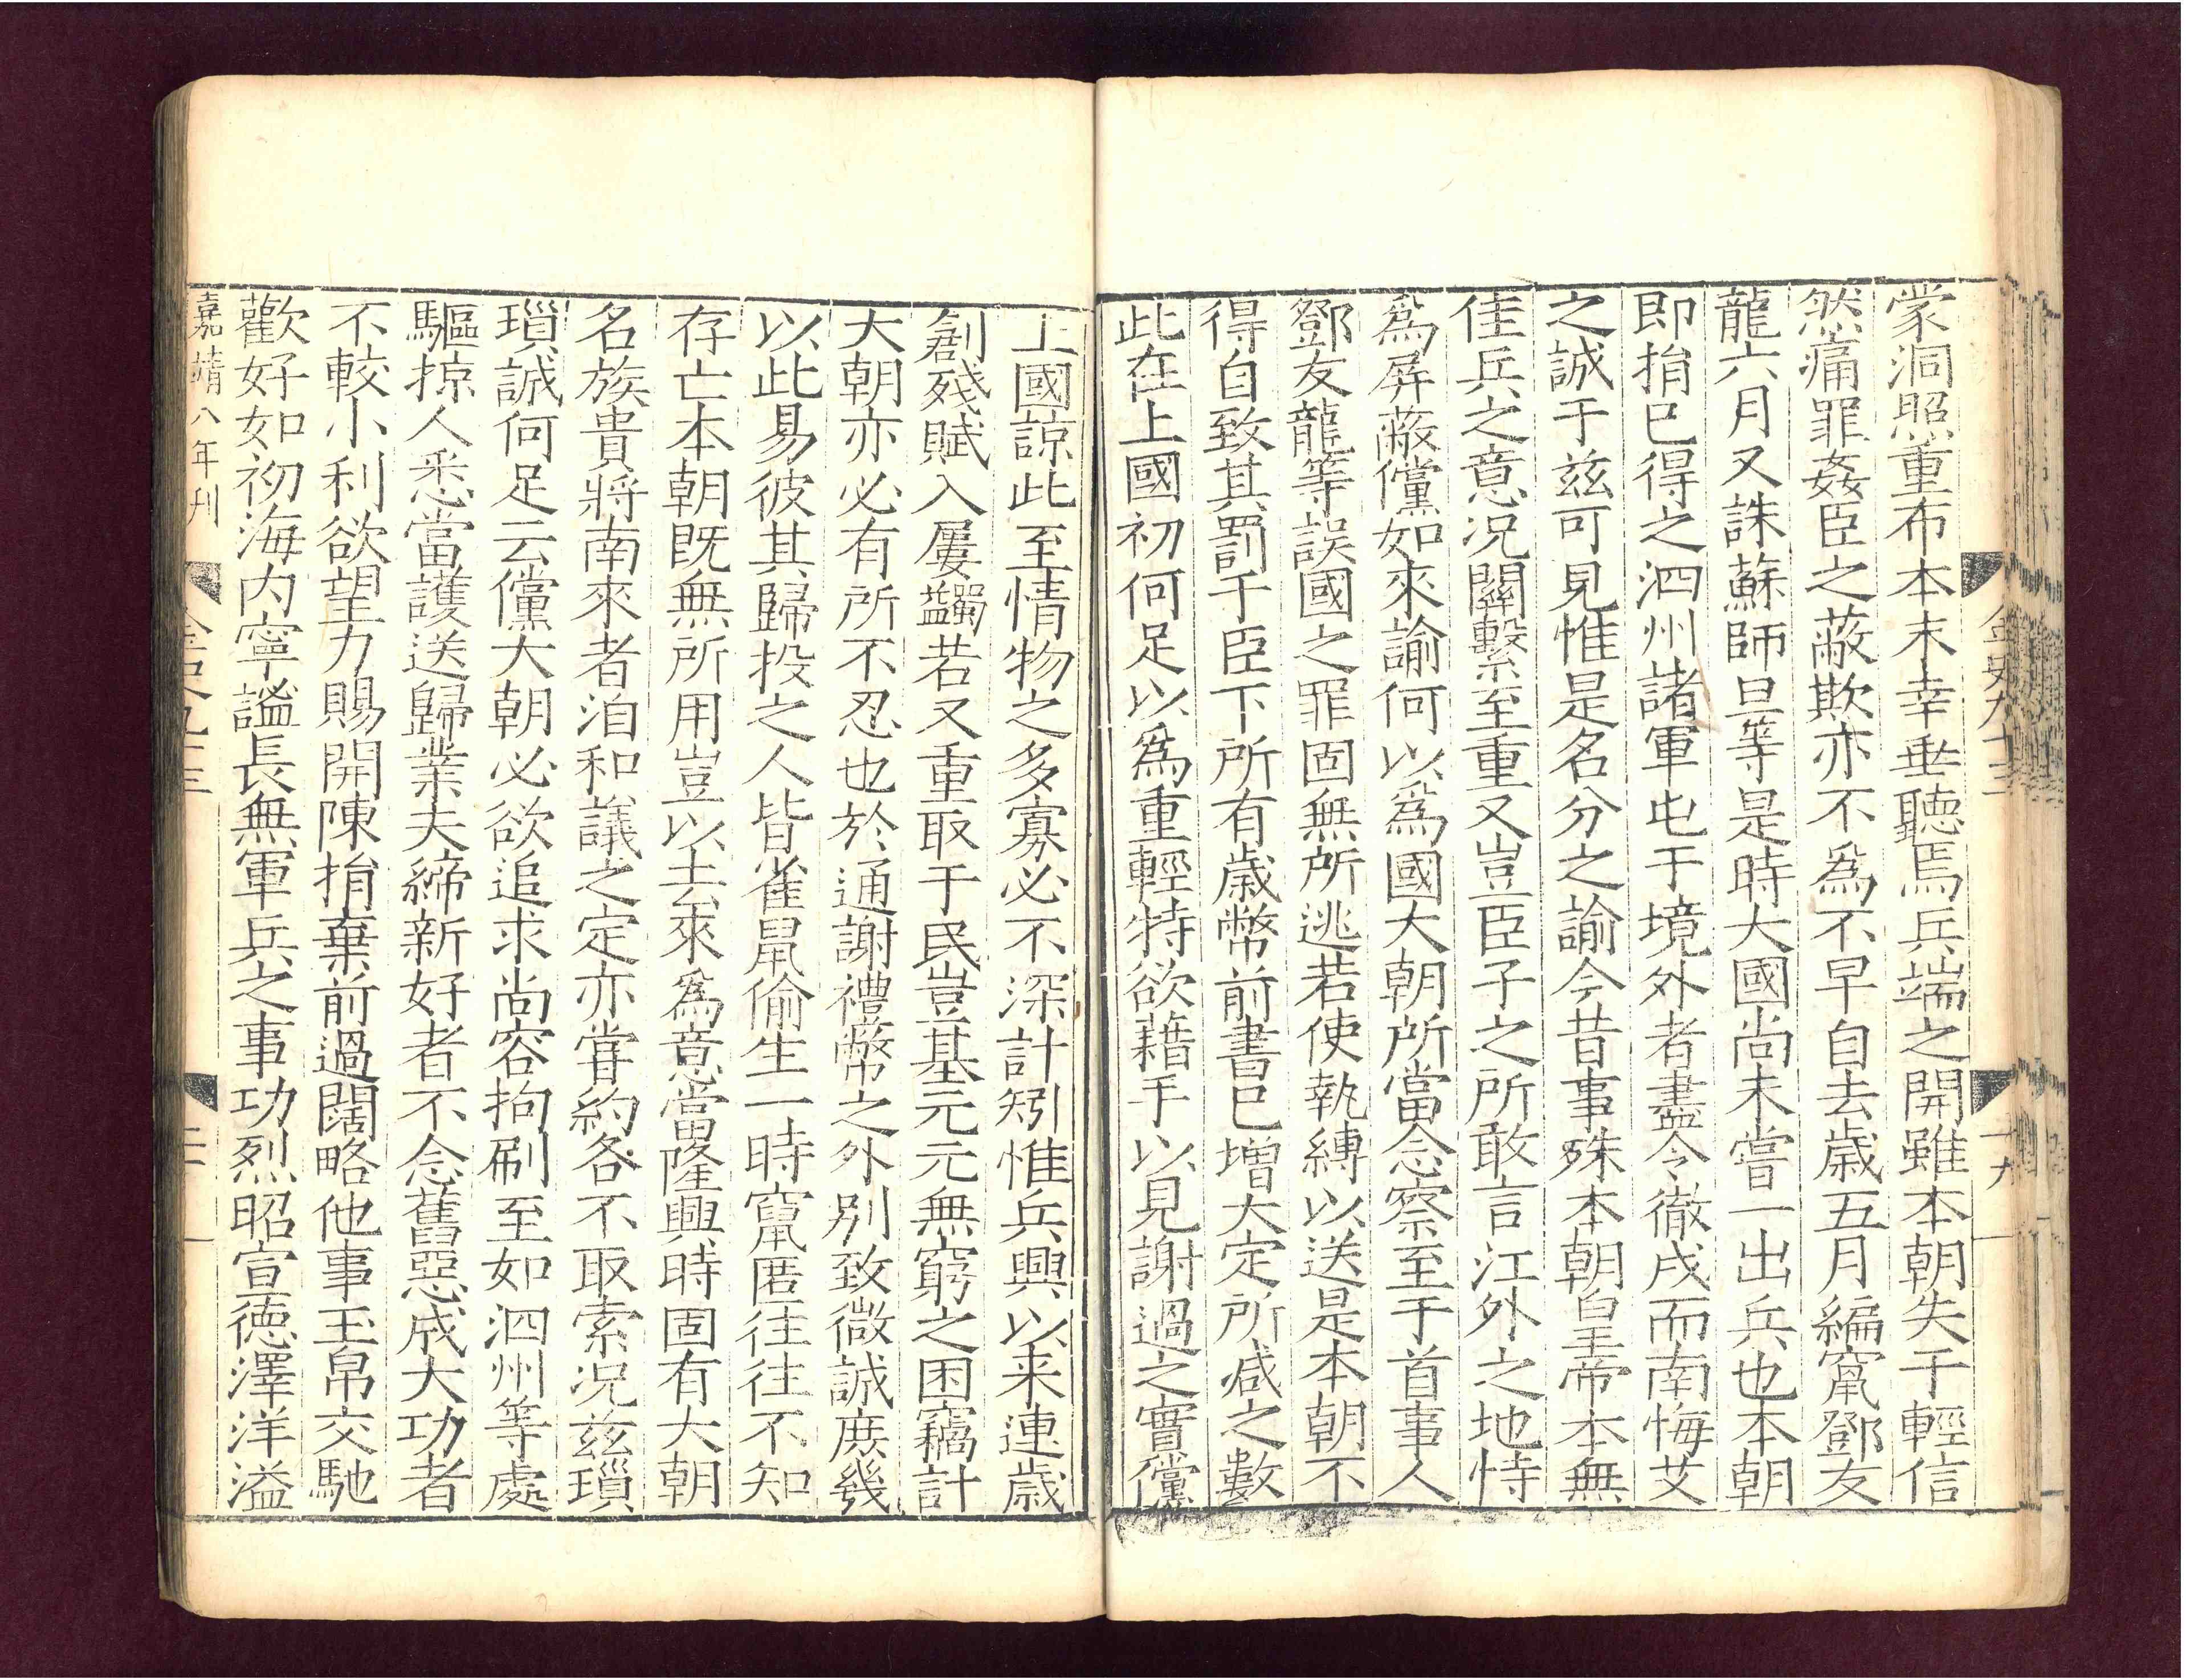 金史九十三
十九
蒙洞照重布本末幸垂聽焉兵端之開雖本朝失于輕信
然痛罪姦臣之蔽欺亦不為不早自去歲五月編竄鄧友
龍六月又誅蘇師旦等是時大國尚未嘗一出兵也本朝
即捐已得之泗州諸軍屯于境外者盡令徹戍而南悔艾
之誠于兹可見惟是名分之諭今昔事殊本朝皇帝本無
佳兵之意况關繫至重又豈臣子之所敢言江外之地恃
為屏蔽儻如來諭何以為國大朝所當念察至于首事人
鄧友龍等誤國之罪固無所逃若使執縛以送是本朝不
得自致其罰于臣下所有歲幣前書已增大定所减之數
此在上國初何足以為重輕特欲藉手以見謝過之實儻
上國諒此至情物之多寡必不深計矧惟兵興以来連歲
創殘賦入屢蠲若又重取于民豈基元元無窮之困竊計
大朝亦必有所不忍也於通謝禮幣之外别致微誠庶幾
以此易彼其歸投之人皆雀鼠偷生一時竄匿往往不知
存亡本朝既無所用豈以去來為意當隆興時固有大朝
名族貴將南來者洎和議之定亦甞約各不取索况兹瑣
瑣誠何足云儻大朝必欲追求尚容拘刷至如泗州等處
驅掠人悉當護送歸業夫締新好者不念舊惡成大功者
不較小利欲望力賜開陳捐棄前過闊略他事玉帛交馳
歡好如初海内寧謐長無軍兵之事功烈昭宣德澤洋溢
嘉靖八年刊